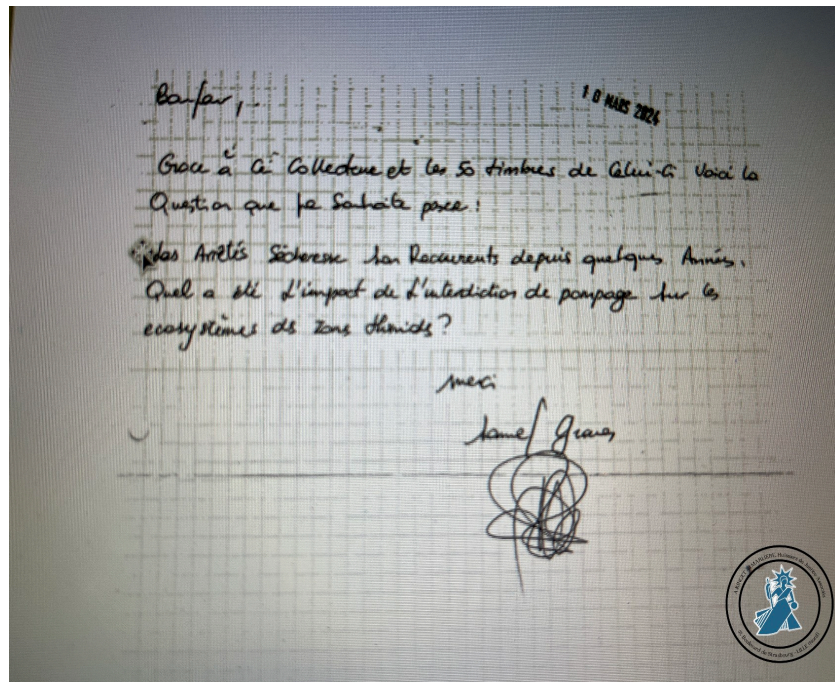 Bonjour,
10 MARS 2024
Grace à Ce Collecteur et les 50 timbres de Celui-Ci Voici la
Question que je Souhaite poser :
Les Arrêtés Sécheresse son Recurrents depuis quelques Années.
Quel a été L'impact de L'interdiction de pompage sur les
ecosystèmes ds Zons Humids ?
merci